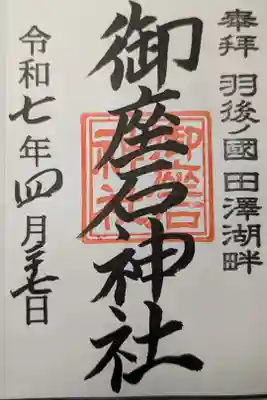 奉拝 羽後ノ國 田澤湖畔
御座石神社
令和七年四月二十七日